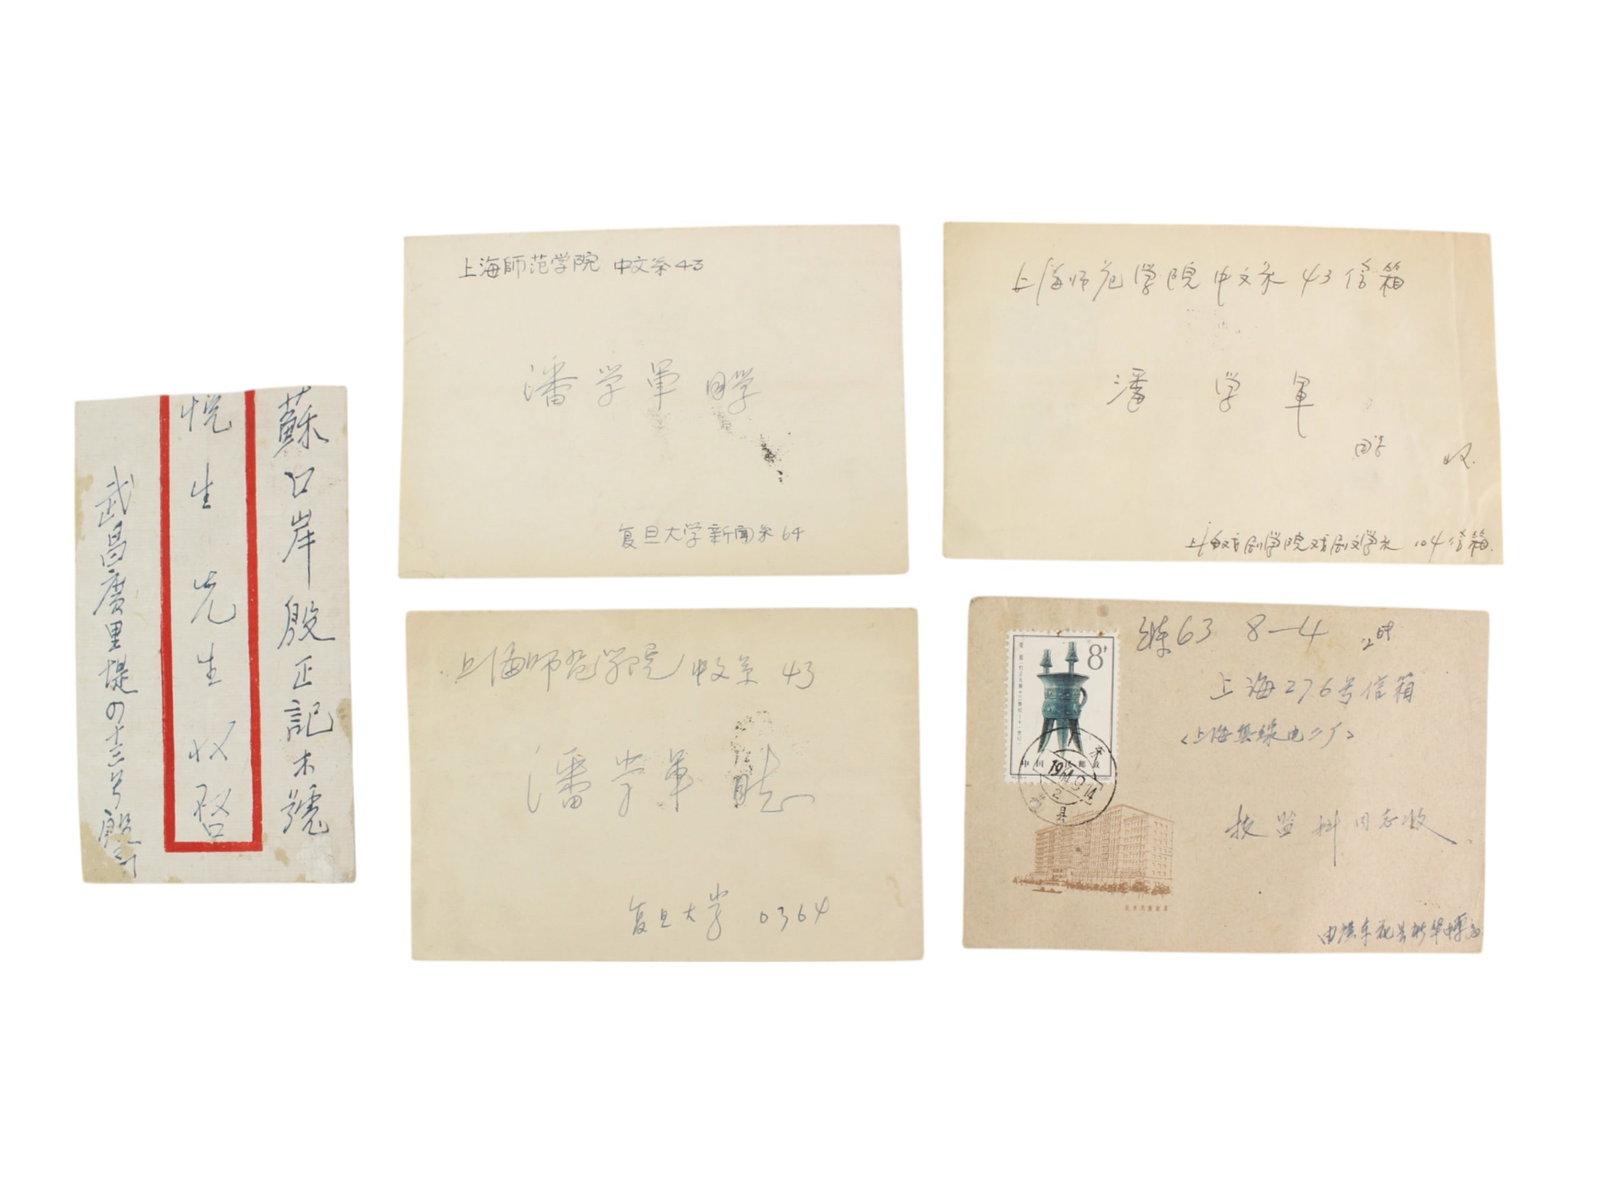 蘇口岸殷正記木號
悅生先生收啓
武昌廣里堤四十三号殷
上海師范学院 中文系43
潘学軍 同学
复旦大学新闻系64
上海师范学院中文系 43信箱
潘学軍
同学 收
上海戏剧学院戏剧文学系 104信箱
上海师范学院 中文系 43
潘学軍 同志
复旦大学 0364
63 8-4
8
中国人民邮政
1964.9.14
县
上海276号信箱
(上海無線电二厂)
技监科同志收